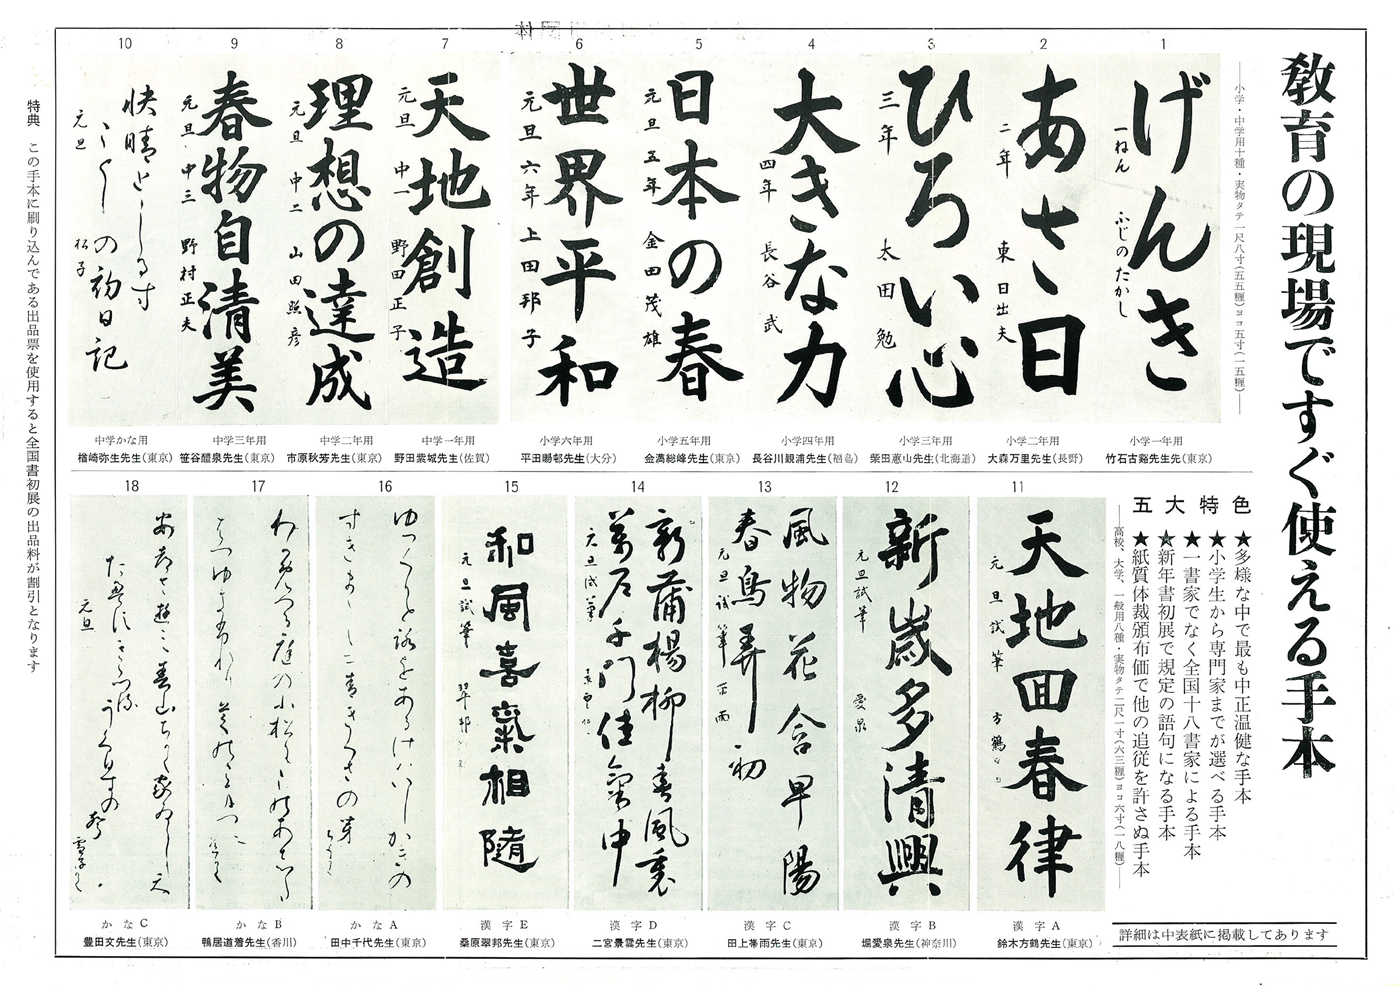 教育の現場ですぐ使える手本
小学・中学用十種・実物タテ一尺八寸(五五糎)ヨコ五寸(一五糎)
1
げんき
一ねん ふじのたかし
小学一年用
2
あさ日
二年 東日出夫
小学二年用
大森万里先生(長野)
3
ひろい心
三年 太田勉
小学三年用
柴田蕙山先生(北海道)
4
大きな力
四年 長谷武
小学四年用
長谷川観浦先生(福島)
5
日本の春
元旦 五年 金田茂雄
小学五年用
金澫総峰先生(東京)
6
世界平和
元旦 六年 上田邦子
小学六年用
平田暘邨先生(大分)
7
天地創造
元旦 中一 野田正子
中学一年用
野田紫城先生(佐賀)
8
理想の達成
元旦 中二 山田照彦
中学二年用
市原秋芳先生(東京)
9
春物自清美
元旦 中三 野村正夫
中学三年用
笹谷醴泉先生(東京)
10
の初日記
元旦 松子
中学かな用
楢崎弥生先生(東京)
五大特色
★多様な中で最も中正温健な手本
★小学生から専門家までが選べる手本
★一書家でなく全国十八書家による手本
★新年書初展で規定の語句になる手本
★紙質体裁頒布価で他の追従を許さぬ手本
高校、大学、一般用八種・実物タテ二尺一寸(六三糎)ヨコ六寸(一八糎)
詳細は中表紙に掲載してあります
11
天地回春律
元旦試筆 方鶴
漢字A
鈴木方鶴先生(東京)
12
新歳多清興
元旦試筆 愛泉
漢字B
堀愛泉先生(神奈川)
13
風物花含早陽
春鳥弄初
元旦試筆
漢字C
田上夆雨先生(東京)
14
新蒲楊柳春風裏
万户千門佳気中
元旦試筆
漢字D
二宮景雲先生(東京)
15
和風喜氣相隨
元旦試筆 翠邦
漢字E
桑原翠邦先生(東京)
16
かなA
田中千代先生(東京)
17
かなB
鴨居道着先生(香川)
18
元旦
かなC
豊田文先生(東京)
特典 この手本に刷り込んである出品票を使用すると全国書初展の出品料が割引となります